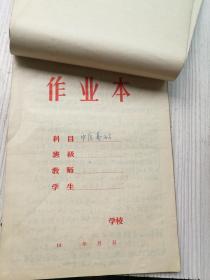 作业本
科目 中医基础
班级
教师
学生
学校
19 年 月 日